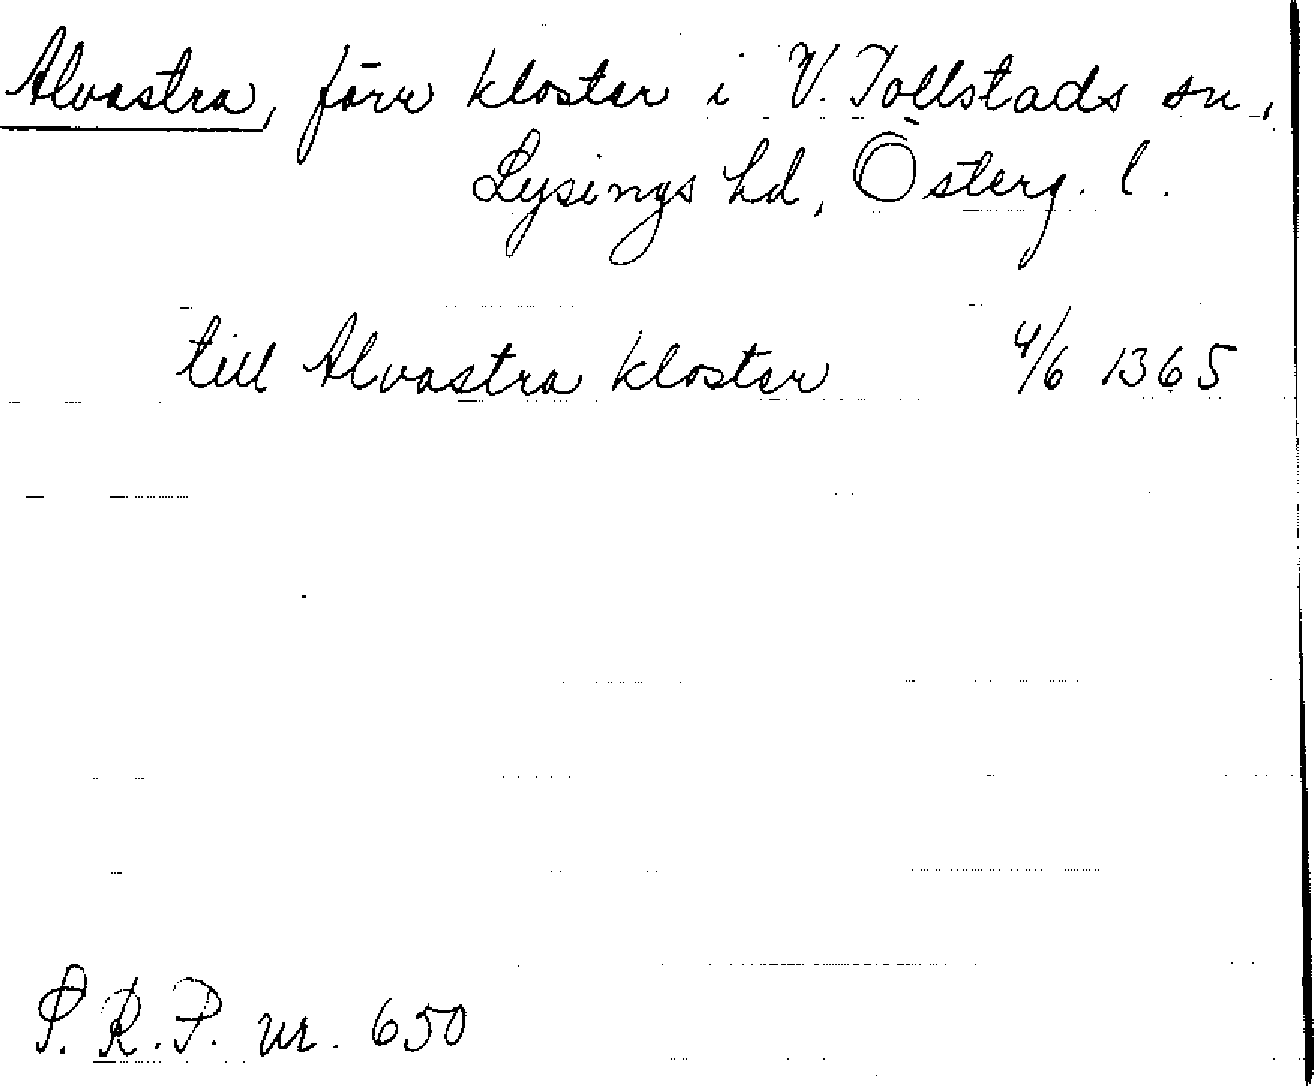 Alvastra, förr kloster i V. Tollstads sn.,
Lysings hd, Österg. l.
till Alvastra kloster 4/6 1365
S. R. P. nr. 650